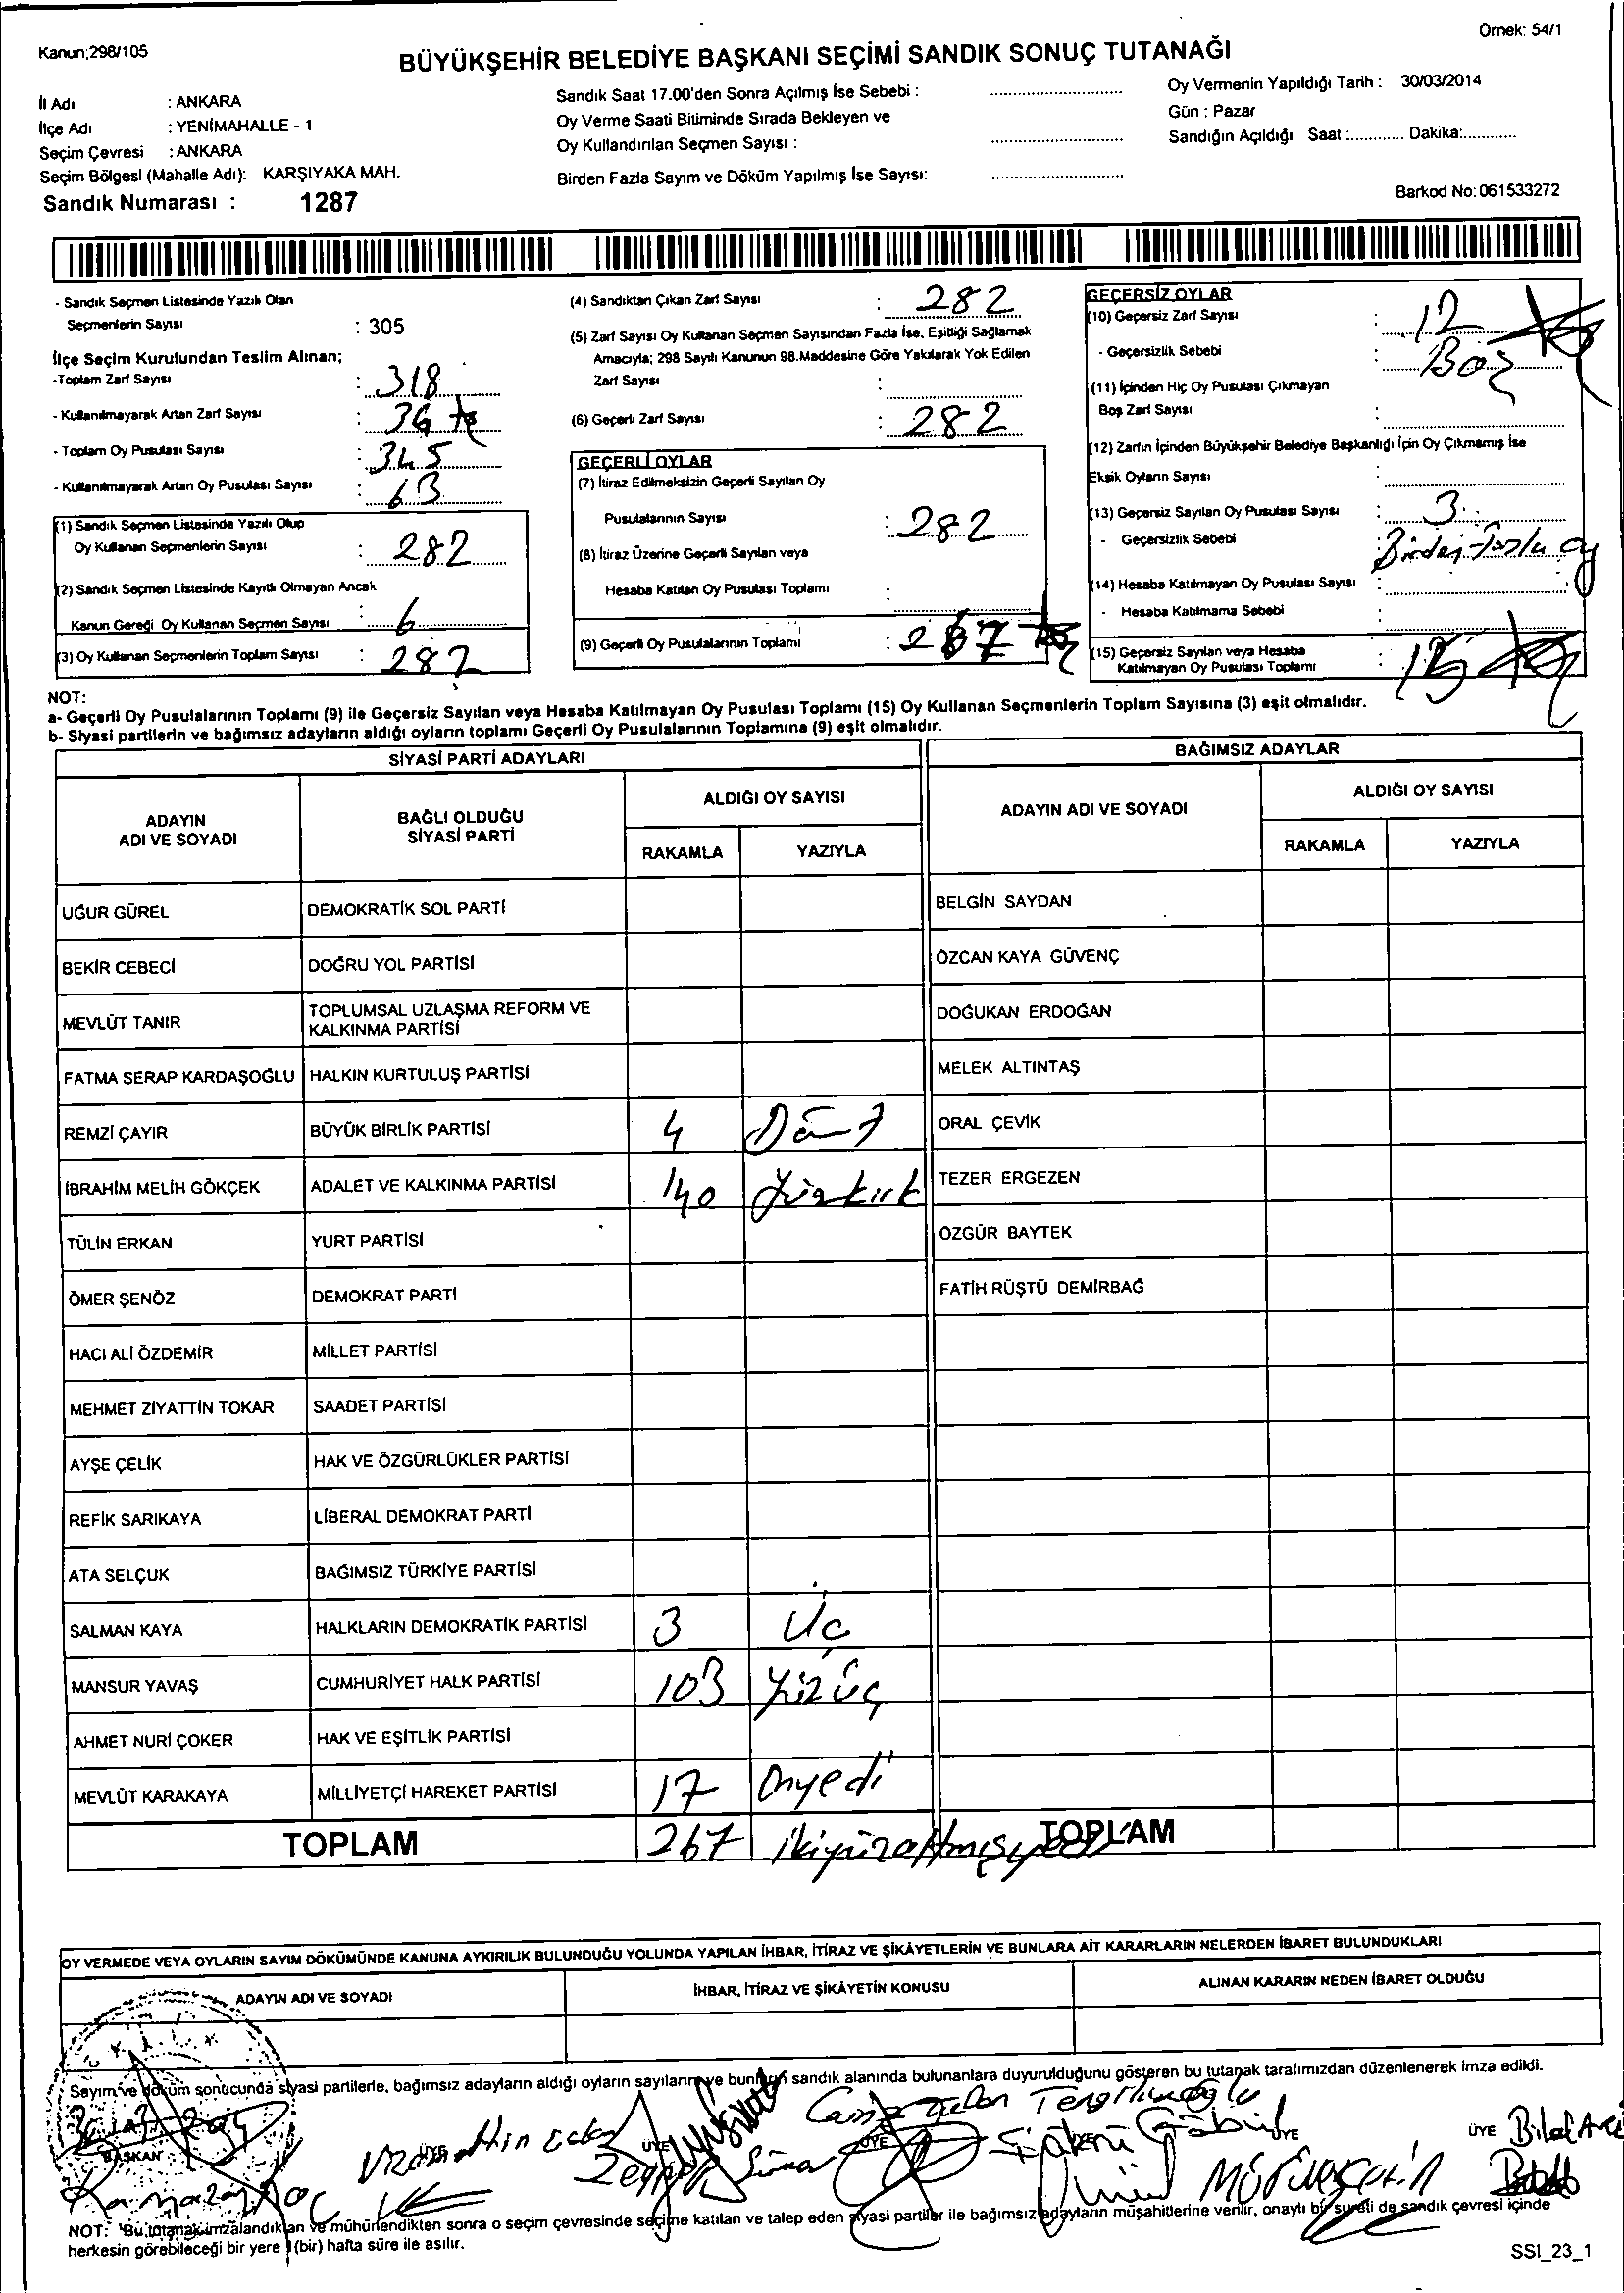 Kanun;298/105
Örnek: 54/1
BÜYÜKŞEHİR BELEDİYE BAŞKANI SEÇİMİ SANDIK SONUÇ TUTANAĞI
İl Adı : ANKARA
İlçe Adı : YENİMAHALLE - 1
Seçim Çevresi : ANKARA
Seçim Bölgesi (Mahalle Adı): KARŞIYAKA MAH.
Sandık Numarası : 1287
Sandık Saat 17.00'den Sonra Açılmış İse Sebebi :
Oy Verme Saati Bitiminde Sırada Bekleyen ve
Oy Kullandırılan Seçmen Sayısı :
Birden Fazla Sayım ve Döküm Yapılmış İse Sayısı:
Oy Vermenin Yapıldığı Tarih : 30/03/2014
Gün : Pazar
Sandığın Açıldığı Saat :............ Dakika:............
Barkod No: 061533272
- Sandık Seçmen Listesinde Yazılı Olan
Seçmenlerin Sayısı : 305
İlçe Seçim Kurulundan Teslim Alınan;
-Toplam Zarf Sayısı : 318
- Kullanılmayarak Artan Zarf Sayısı : 36
- Toplam Oy Pusulası Sayısı : 345
- Kullanılmayarak Artan Oy Pusulası Sayısı : 63
(1) Sandık Seçmen Listesinde Yazılı Olup
Oy Kullanan Seçmenlerin Sayısı : 282
(2) Sandık Seçmen Listesinde Kayıtlı Olmayan Ancak
Kanun Gereği Oy Kullanan Seçmen Sayısı : 6
(3) Oy Kullanan Seçmenlerin Toplam Sayısı : 282
(4) Sandıktan Çıkan Zarf Sayısı : 282
(5) Zarf Sayısı Oy Kullanan Seçmen Sayısından Fazla İse, Eşitliği Sağlamak
Amacıyla; 298 Sayılı Kanunun 98.Maddesine Göre Yakılarak Yok Edilen
Zarf Sayısı :
(6) Geçerli Zarf Sayısı : 282
GEÇERLİ OYLAR
(7) İtiraz Edilmeksizin Geçerli Sayılan Oy
Pusulalarının Sayısı : 282
(8) İtiraz Üzerine Geçerli Sayılan veya
Hesaba Katılan Oy Pusulası Toplamı :
(9) Geçerli Oy Pusulalarının Toplamı : 267
GEÇERSİZ OYLAR
(10) Geçersiz Zarf Sayısı : 12
- Geçersizlik Sebebi : Boş
(11) İçinden Hiç Oy Pusulası Çıkmayan
Boş Zarf Sayısı :
(12) Zarfın İçinden Büyükşehir Belediye Başkanlığı İçin Oy Çıkmamış İse
Eksik Oyların Sayısı :
(13) Geçersiz Sayılan Oy Pusulası Sayısı : 3
- Geçersizlik Sebebi : Birden fazla oy
(14) Hesaba Katılmayan Oy Pusulası Sayısı :
- Hesaba Katılmama Sebebi :
(15) Geçersiz Sayılan veya Hesaba
Katılmayan Oy Pusulası Toplamı : 15
NOT:
a- Geçerli Oy Pusulalarının Toplamı (9) ile Geçersiz Sayılan veya Hesaba Katılmayan Oy Pusulası Toplamı (15) Oy Kullanan Seçmenlerin Toplam Sayısına (3) eşit olmalıdır.
b- Siyasi partilerin ve bağımsız adayların aldığı oyların toplamı Geçerli Oy Pusulalarının Toplamına (9) eşit olmalıdır.
SİYASİ PARTİ ADAYLARI
ADAYIN
ADI VE SOYADI
BAĞLI OLDUĞU
SİYASİ PARTİ
ALDIĞI OY SAYISI
RAKAMLA YAZIYLA
UĞUR GÜREL DEMOKRATİK SOL PARTİ
BEKİR CEBECİ DOĞRU YOL PARTİSİ
MEVLÜT TANIR TOPLUMSAL UZLAŞMA REFORM VE
KALKINMA PARTİSİ
FATMA SERAP KARDAŞOĞLU HALKIN KURTULUŞ PARTİSİ
REMZİ ÇAYIR BÜYÜK BİRLİK PARTİSİ 4 Dört
İBRAHİM MELİH GÖKÇEK ADALET VE KALKINMA PARTİSİ 140 Yüzkırk
TÜLİN ERKAN YURT PARTİSİ
ÖMER ŞENÖZ DEMOKRAT PARTİ
HACI ALİ ÖZDEMİR MİLLET PARTİSİ
MEHMET ZİYATTİN TOKAR SAADET PARTİSİ
AYŞE ÇELİK HAK VE ÖZGÜRLÜKLER PARTİSİ
REFİK SARIKAYA LİBERAL DEMOKRAT PARTİ
ATA SELÇUK BAĞIMSIZ TÜRKİYE PARTİSİ
SALMAN KAYA HALKLARIN DEMOKRATİK PARTİSİ 3 Üç
MANSUR YAVAŞ CUMHURİYET HALK PARTİSİ 103 Yüzüç
AHMET NURİ ÇOKER HAK VE EŞİTLİK PARTİSİ
MEVLÜT KARAKAYA MİLLİYETÇİ HAREKET PARTİSİ 17 Onyedi
TOPLAM 267 ikiyüzaltmışyedi
BAĞIMSIZ ADAYLAR
ADAYIN ADI VE SOYADI
ALDIĞI OY SAYISI
RAKAMLA YAZIYLA
BELGİN SAYDAN
ÖZCAN KAYA GÜVENÇ
DOĞUKAN ERDOĞAN
MELEK ALTINTAŞ
ORAL ÇEVİK
TEZER ERGEZEN
ÖZGÜR BAYTEK
FATİH RÜŞTÜ DEMİRBAĞ
TOPLAM
OY VERMEDE VEYA OYLARIN SAYIM DÖKÜMÜNDE KANUNA AYKIRILIK BULUNDUĞU YOLUNDA YAPILAN İHBAR, İTİRAZ VE ŞİKÂYETLERİN VE BUNLARA AİT KARARLARIN NELERDEN İBARET BULUNDUKLARI
ADAYIN ADI VE SOYADI
İHBAR, İTİRAZ VE ŞİKÂYETİN KONUSU
ALINAN KARARIN NEDEN İBARET OLDUĞU
Sayım ve döküm sonucunda siyasi partilerle, bağımsız adayların aldığı oyların sayılarını ve bunların sandık alanında bulunanlara duyurulduğunu gösteren bu tutanak tarafımızdan düzenlenerek imza edildi.
BAŞKAN ÜYE ÜYE ÜYE ÜYE ÜYE ÜYE
Ramazan Koç
Zeynep Sümer
Bilal
NOT: Bu tutanak imzalandıktan ve mühürlendikten sonra o seçim çevresinde seçime katılan ve talep eden siyasi partiler ile bağımsız adayların müşahitlerine verilir, onaylı bir sureti de sandık çevresi içinde
herkesin görebileceği bir yere 1(bir) hafta süre ile asılır.
SSI_23_1